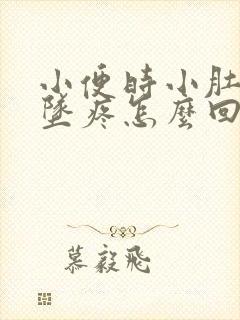 小便時小肚
墜疼怎麼回
慕毅飛